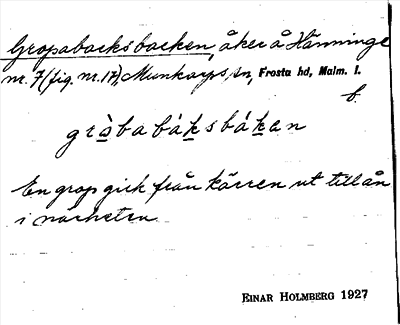 Gropabacksbacken, åker å Hänninge
nr. 7 (fig. nr. 17), Munkarps sn, Frosta hd, Malm. l.
b.
gròbabáksbákan
En grop gick från kärren ut till ån
i närheten
EINAR HOLMBERG 1927